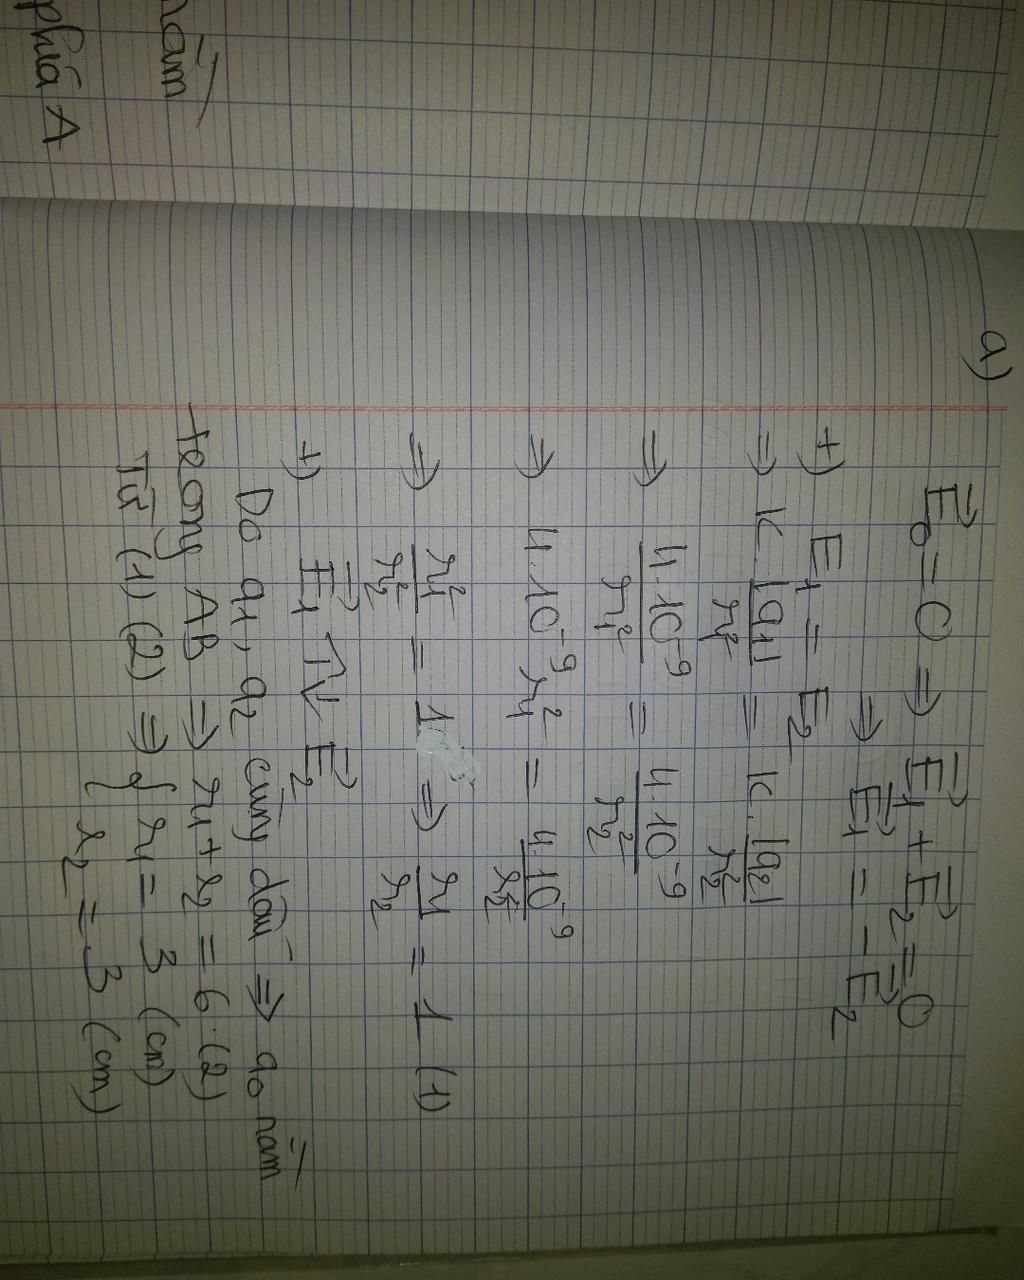 nằm
phía A
a)
E⃗₀ = 0 ⇒ E⃗₁ + E⃗₂ = 0⃗
⇒ E⃗₁ = − E⃗₂
+) E₁ = E₂
⇒ k. |q₁|/r₁² = k. |q₂|/r₂²
⇒ 4.10⁻⁹/r₁² = 4.10⁻⁹/r₂²
⇒ 4.10⁻⁹ r₁² = 4.10⁻⁹/r₂²
⇒ r₁²/r₂² = 1 ⇒ r₁/r₂ = 1 (1)
+) E⃗₁ ↑↓ E⃗₂
Do q₁, q₂ cùng dấu ⇒ q₀ nằm
trong AB ⇒ r₁ + r₂ = 6 (2)
Từ (1) (2) ⇒ { r₁ = 3 (cm)
r₂ = 3 (cm)